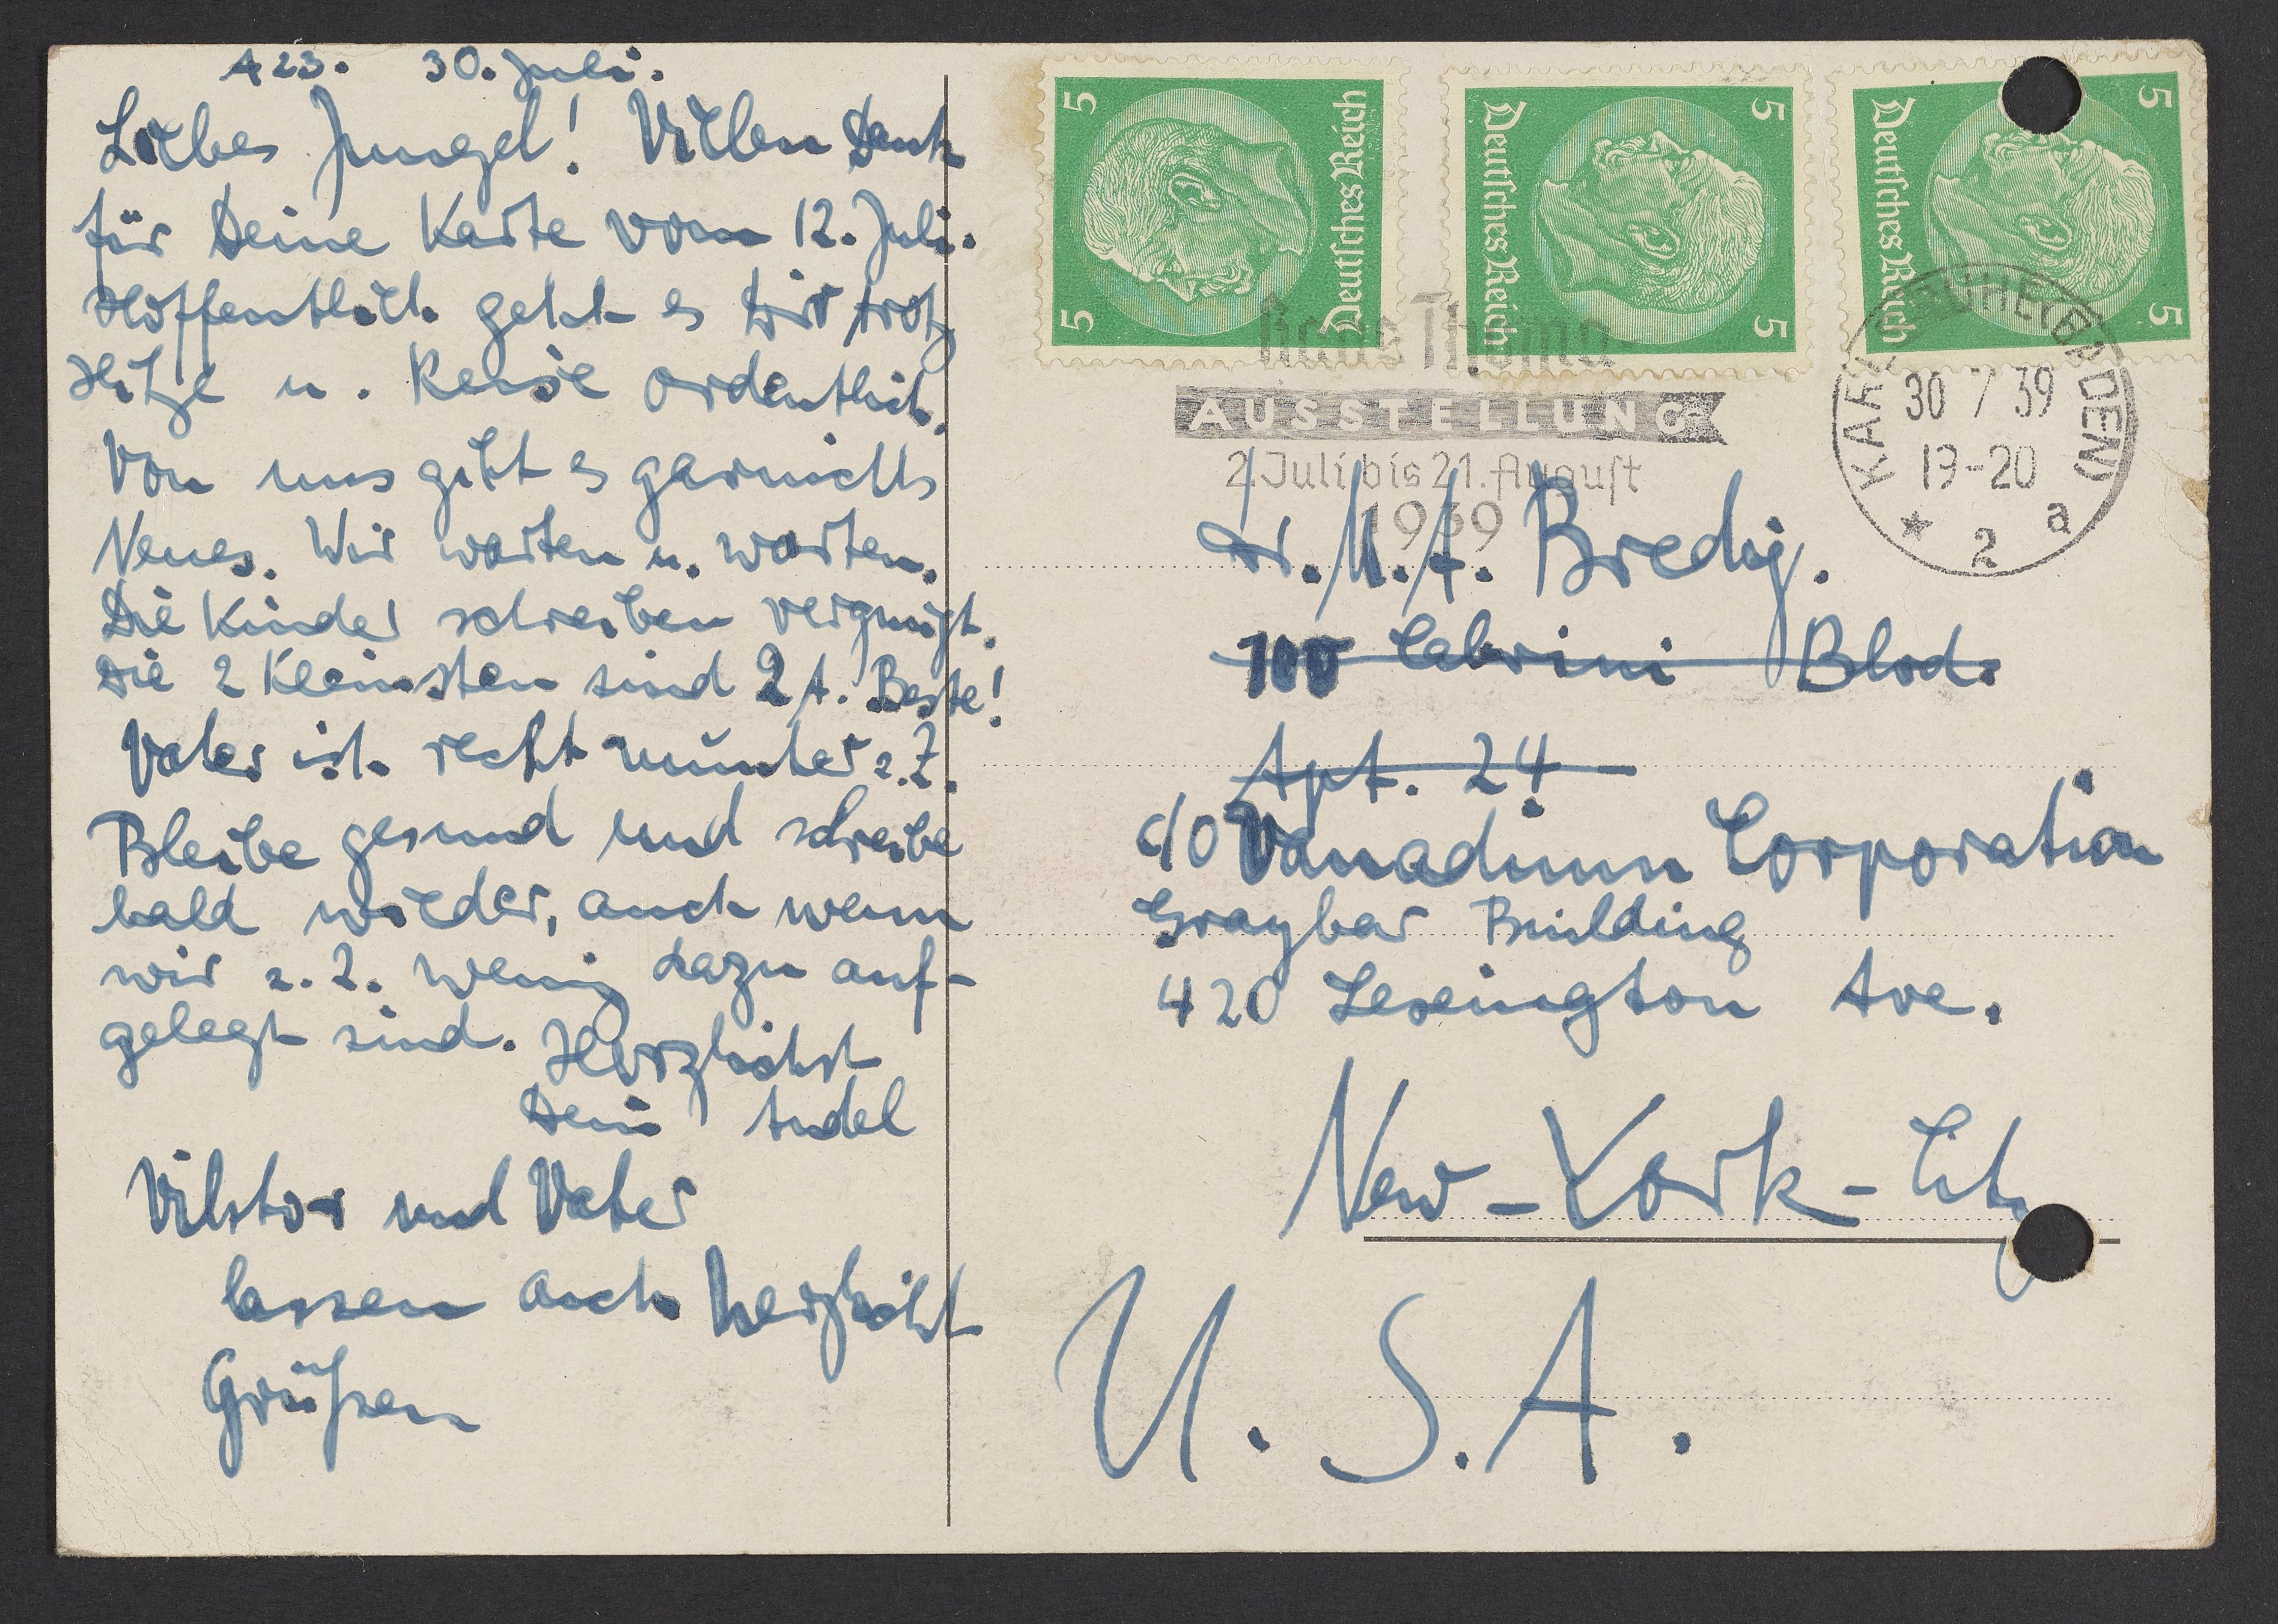 A23. 30. Juli.
Liebes Jungel! Vielen Dank
für Deine Karte vom 12. Juli.
Hoffentlich geht es Dir trotz
Hitze u. Reise ordentlich.
Von uns gibt es garnichts
Neues. Wir warten u. warten.
Die Kinder schreiben vergnügt.
Die 2 Kleinsten sind z. Beste!
Vater ist recht munter z. Z.
Bleibe gesund und schreibe
bald wieder, auch wenn
wir z. Z. wenig dazu auf-
gelegt sind. Herzlichst
Dein Andel
Viktor und Vater
lassen auch herzlichst
Grüßen
5 Deutsches Reich 5
Deutsches Reich 5 5
Deutsches Reich 5 5
Hans Thoma
AUSSTELLUNG
2. Juli bis 21. August
1939
KARLSRUHE (BADEN)
30 7 39
19-20
* 2 a
Dr. M. A. Bredig.
100 Cabrini Blvd.
Apt. 24
c/o Vanadium Corporation
Graybar Building
420 Lexington Ave.
New-York-City
U. S. A.